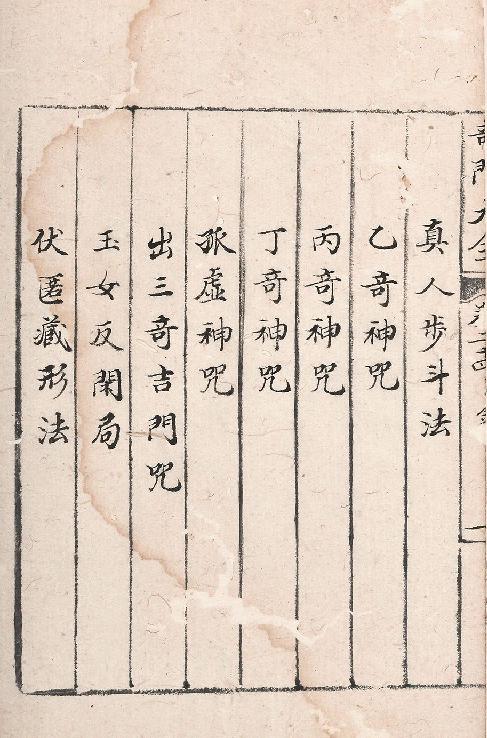 奇門大全
真人步斗法
乙竒神咒
丙竒神咒
丁竒神咒
孤虛神咒
出三竒吉門咒
玉女反閉局
伏匿藏形法